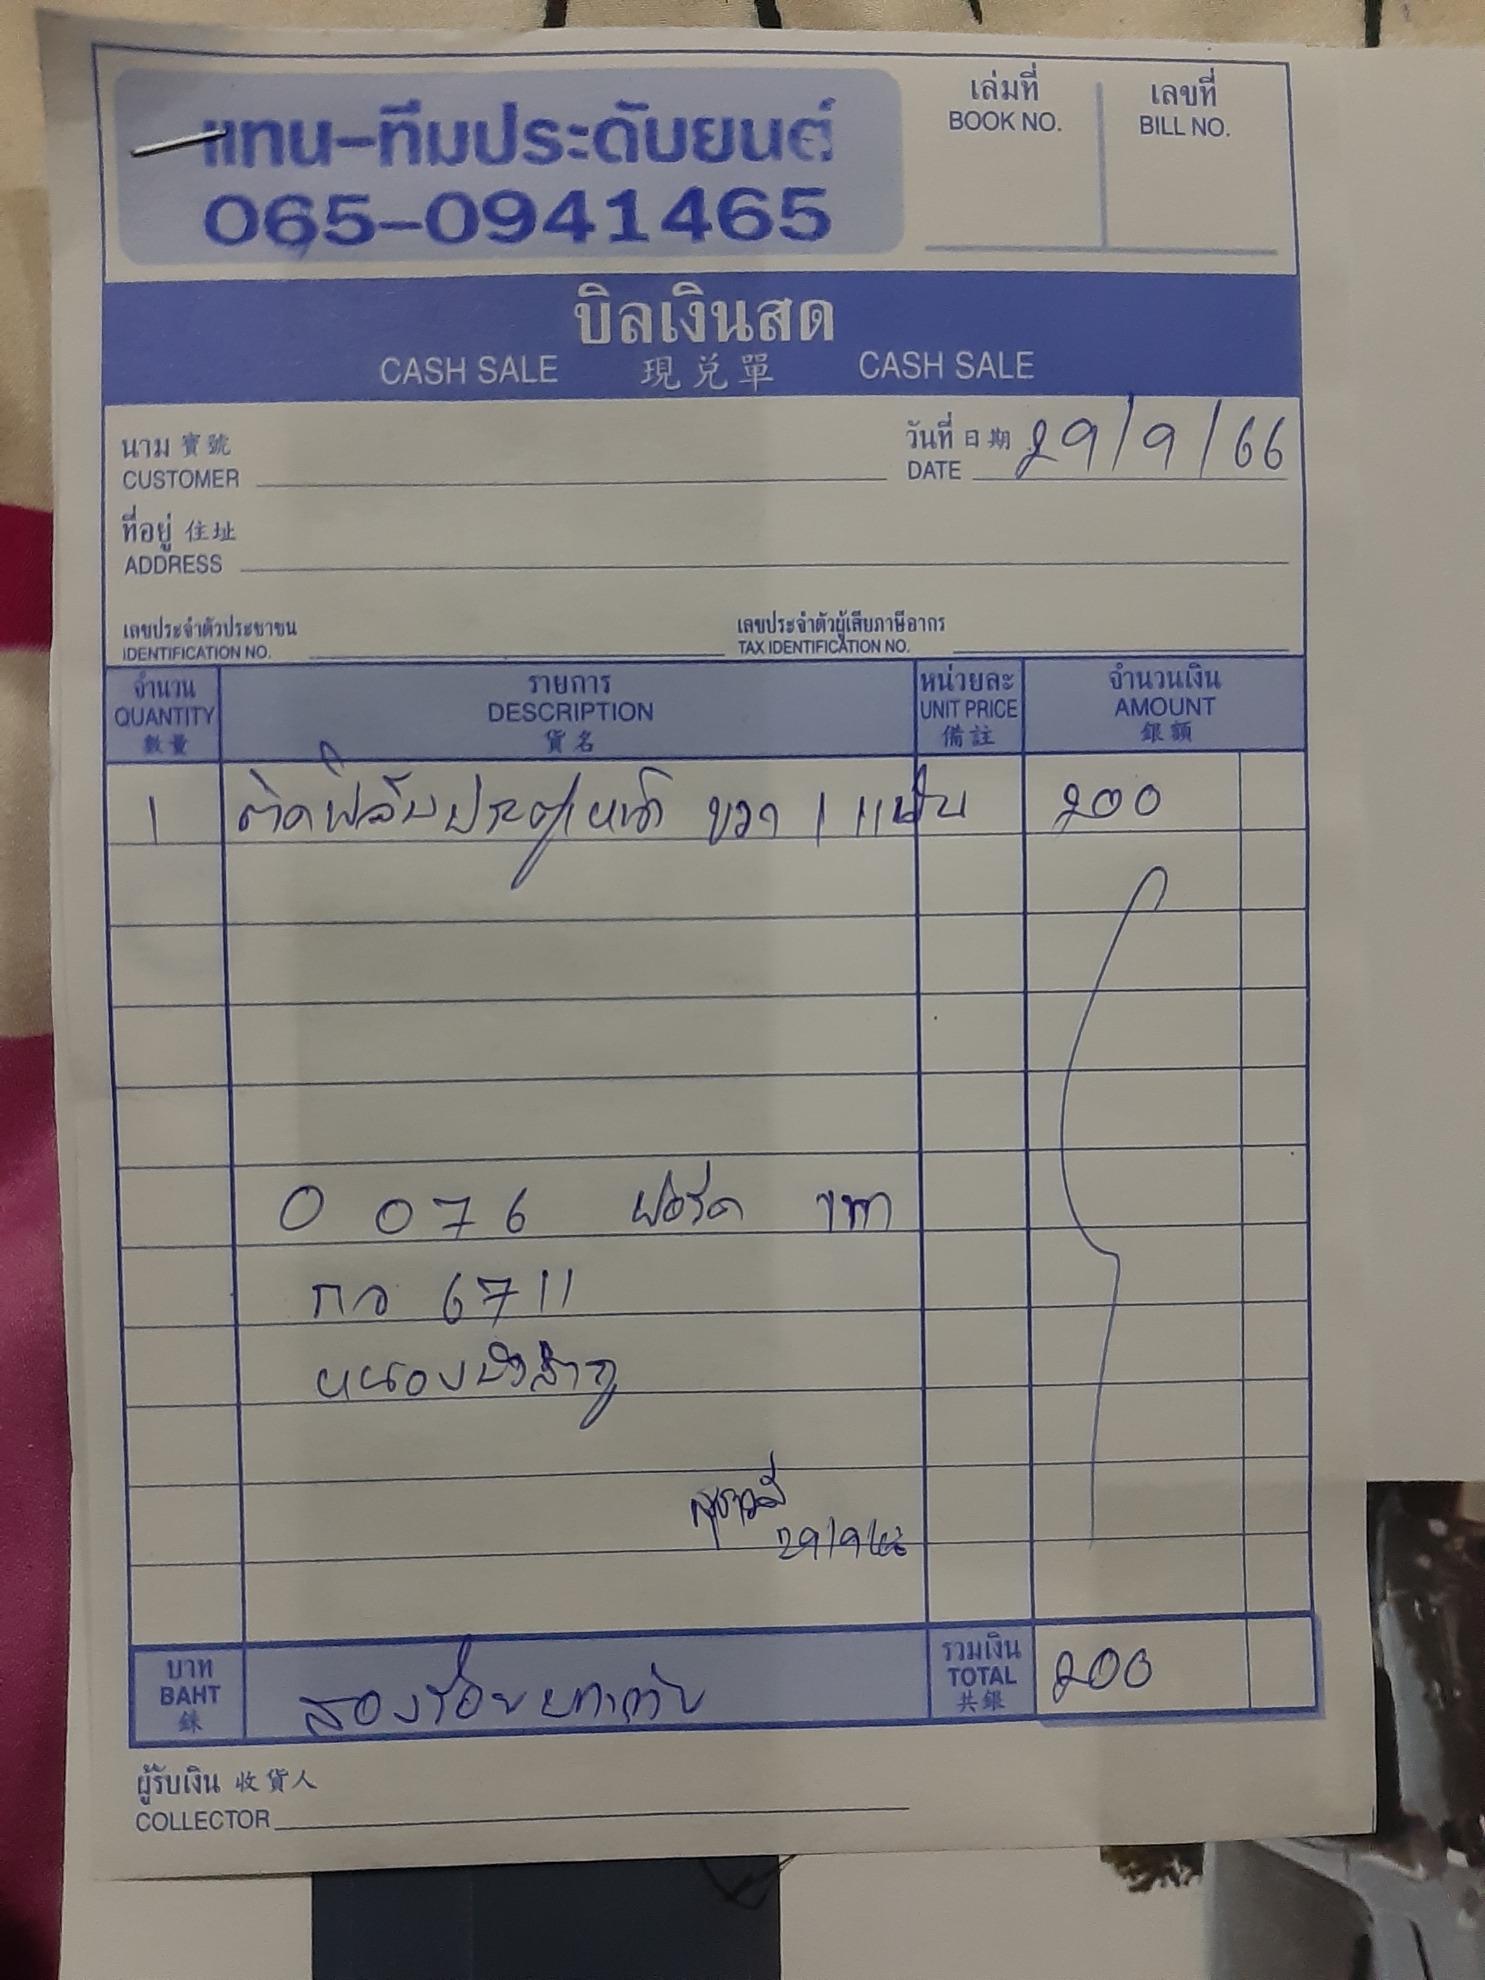 แทน-ทีมประดับยนต์
065-0941465
เล่มที่
BOOK NO.
เลขที่
BILL NO.
บิลเงินสด
CASH SALE 現兌單 CASH SALE
นาม 寶號
CUSTOMER
วันที่ 日期 29/9/66
DATE
ที่อยู่ 住址
ADDRESS
เลขประจำตัวประชาชน
IDENTIFICATION NO.
เลขประจำตัวผู้เสียภาษีอากร
TAX IDENTIFICATION NO.
จำนวน
QUANTITY
數量
รายการ
DESCRIPTION
貨名
หน่วยละ
UNIT PRICE
備註
จำนวนเงิน
AMOUNT
銀額
1 ติดฟิล์มประตูหน้า ขวา 1 แผ่น 200
0 076 ฟอร์ด เทา
กอ 6711
หนองบัวลำภู
29/9/66
บาท
BAHT
銖
สองร้อยบาทถ้วน
รวมเงิน
TOTAL
共銀
200
ผู้รับเงิน 收貨人
COLLECTOR